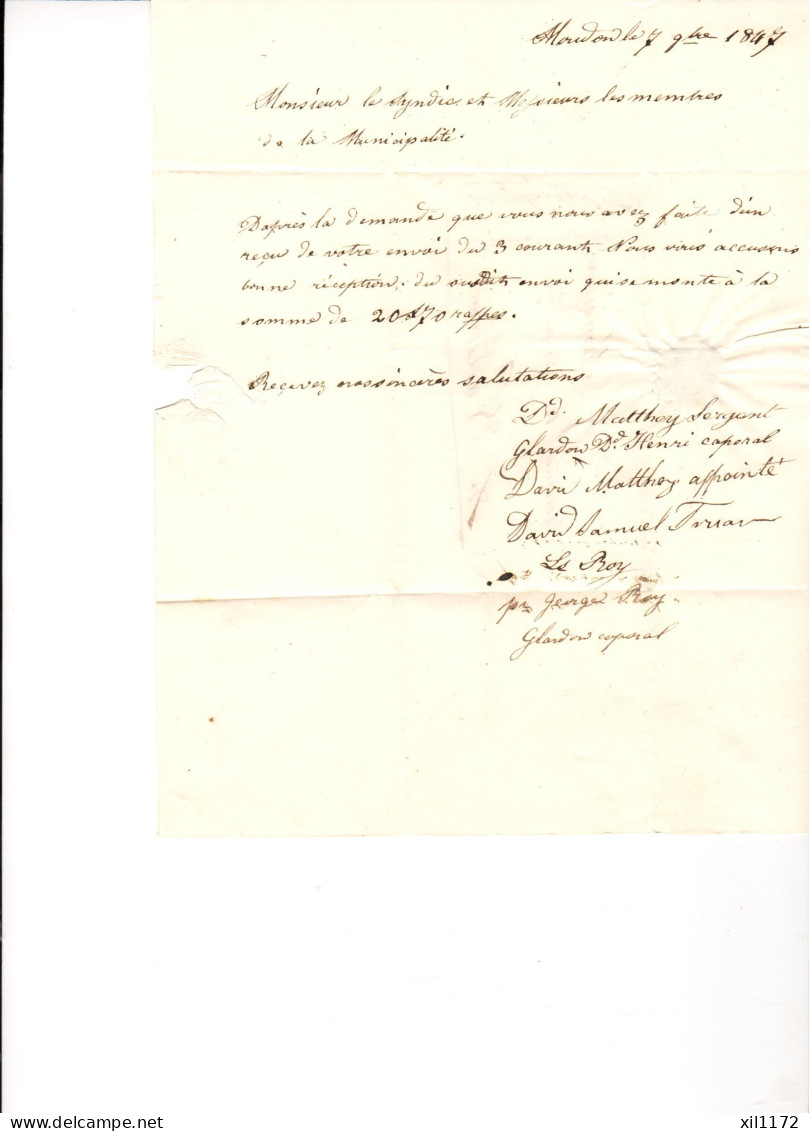 Moudon le 7 9bre 1847
Monsieur le Syndic et Messieurs les membres
de la Municipalité.
D'après la demande que vous nous avez faite d'un
reçu de votre envoi du 3 courant. Nous vous accusons
bonne réception, du susdit envoi qui se monte à la
somme de 20 f 70 rappes.
Recevez nos sincères salutations
Dd. Matthey Sergent
Glardon Dd. Henri caporal
David Matthey appointé
David Samuel
Ls Roy
pr George Roy.
Glardon caporal
delcampe.net
xil1172